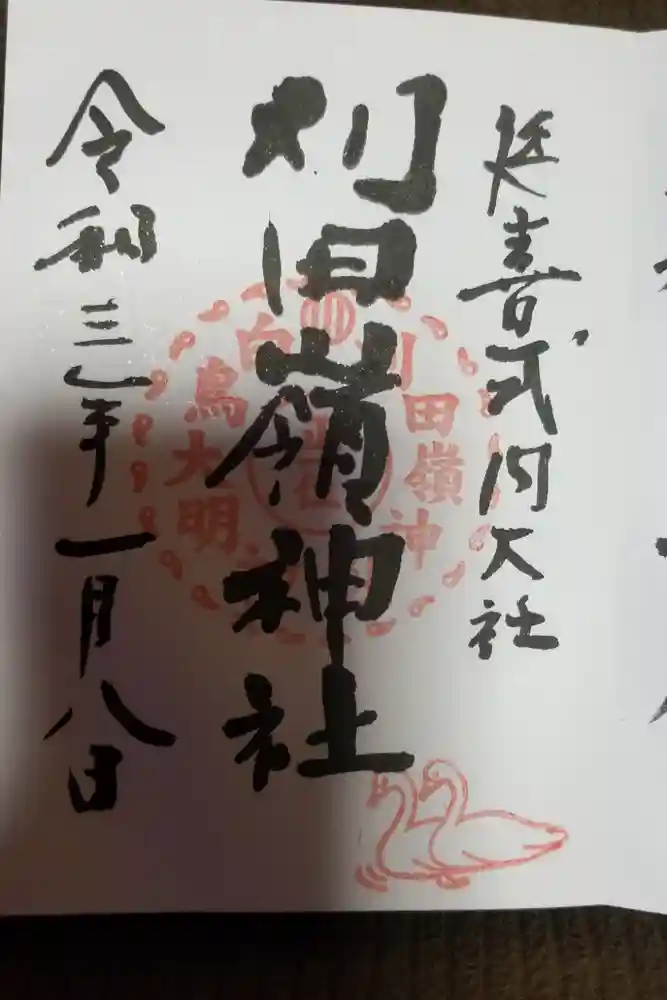 延喜式内大社
刈田嶺神社
令和三年一月八日
刈田嶺神社
白鳥大明